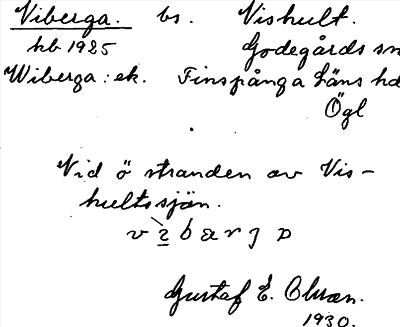 Viberga. bs. Vishult.
hb 1925 Godegårds sn
Wiberga: ek. Finspånga läns hd
Ögl
Vid ö stranden av Vis-
hultssjön.
Gustaf E. Olsson.
1930.